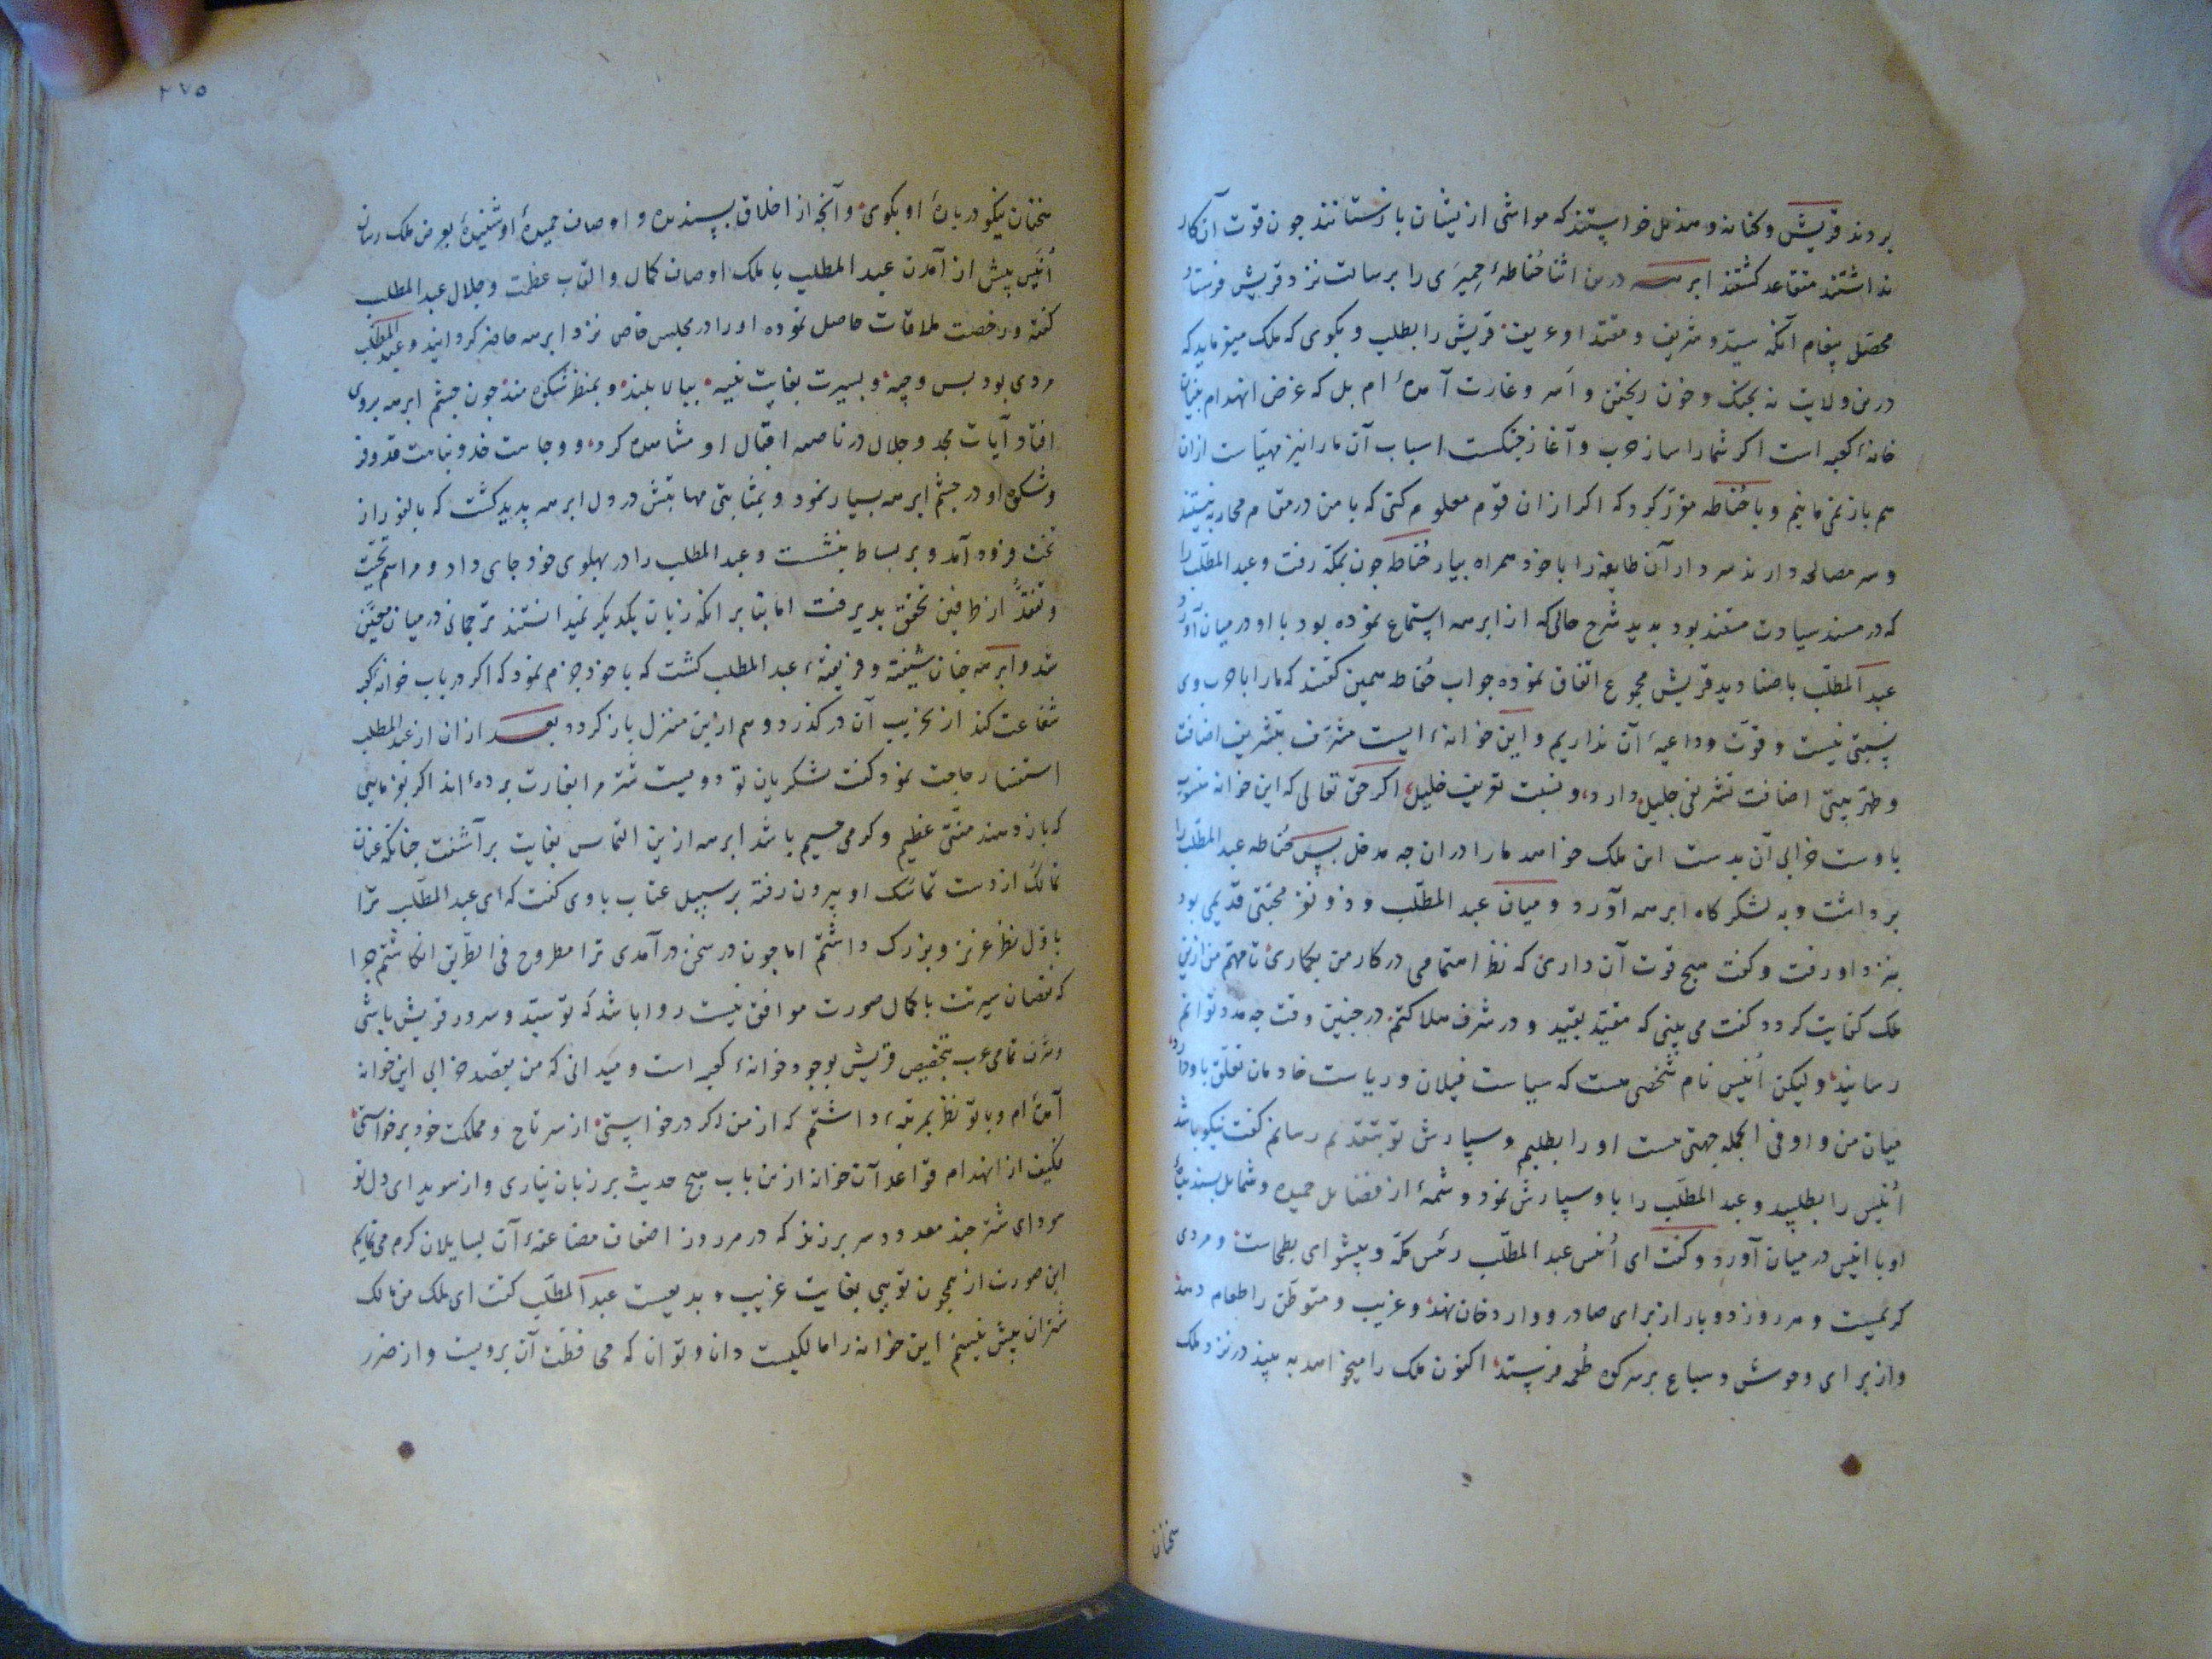 بردند قریش و کنانه و هذیل خواستند که مواشی ازیشان بازستانند چون قوت آن کار
نداشتند متقاعد گشتند ابرهه درین اثنا حُناطهٔ حِمیَری را برسالت نزد قریش فرستاد
محصّل پیغام آنکه سیّد و شریف و مقتدا و عریف قریش را بطلب و بکوی که ملک میفرماید که
درین ولایت نه بجنک و خون ریختن و اَسر و غارت آمدهٔ ام بل که غرض انهدام بنیان
خانهٔ کعبه است اکر شما را ساز حرب و آغاز جنکست اسباب آن ما را نیز مهیّاست ازان
هم باز نمی مانیم و با حُناطه مقرّر کرد که اکر ازان قوم معلوم کنی که با من در مقام محاربه نیستند
و سر مصالحه دارند سردار آن طایفه را با خود همراه بیار حُناطه چون بمکّه رفت و عبد المطّلب را
که در مسند سیادت مستند بود بدید شرح حالی که از ابرهه استماع نموده بود با او در میان آورد
عبد المطّلب با صنادید قریش مجموع اتفاق نموده جواب حُناطه همین کفتند که ما را با حرب وی
نسبتی نیست و قوّت و داعیهٔ آن نداریم و این خانهٔ ایست مشرّف بتشریف اضافت
و طهّر بیتی اضافت تشریفی جلیل دارد و نسبت تعریف خلیل اکر حق تعالی که این خانه منسوب
باوست خرابی آن بدست این ملک خواهد ما را دران چه مدخل پس حُناطه عبد المطّلب را
برداشت و به لشکرکاه ابرهه آورد و میان عبد المطّلب و ذو نفر محبّتی قدیمی بود
بنزد او رفت و کفت هیچ قوت آن داری که نظر اهتمامی در کار من بکماری تا مهمّ من ازین
ملک کفایت کردد کفت می بینی که مقیّد بقیید و در شرف هلاکتم در چنین وقت چه مدد توانم
رسانید ولیکن اُنَیس نام شخصی هست که سیاست فیلان و ریاست خادمان تعلّق باو دارد
میان من و او فی الجمله جهتی هست او را بطلبم و سپارش تو بتقدیم رسانم کفت نیکو باشد
اُنَیس را بطلبید و عبد المطلّب را باو سپارش نمود و شمهٔ از فضایل حمیده و شمایل پسندیدهٔ
او با انیس در میان آورد و کفت ای اُنَیس عبد المطلّب رئس مکّه و پیشوای بطحاست و مردی
کریمیست و هر روز دو بار از برای صادر و وارد خوان نهد و غریب و متوطّن را طعام دهد
و از برای وحوش و سباع بر سر کوه طُعمه فرستد اکنون ملک را میخواهد به بیند در نزد ملک
سخنان
۲۷۵
سخنان نیکو دربارهٔ او بکوی و آنچه از اخلاق پسندیده و اوصاف حمیدهٔ او شنیدهٔ بعرض ملک رسان
اُنَیس پیش از آمدن عبد المطلب با ملک اوصاف کمال و القاب عظمت و جلال عبد المطلب
کفته و رخصت ملاقات حاصل نموده او را در مجلس خاص نزد ابرهه حاضر کردانید و عبد المطلّب
مردی بود بس وجیه و بسیرت بغایت نبیه ببالا بلند و بمنظر شکوه مند چون چشم ابرهه بروی
افتاد آیات مجد و جلال در ناصیهٔ اقبال او مشاهده کرد و وجاهت خد و نباهت قد و فر
و شکوه او در چشم ابرهه بسیار نمود و بمثابتی مهابتش در دل ابرهه پدید کشت که بالفور از
تخت فروده آمد و بر بساط بنشست و عبد المطلب را در پهلوی خود جای داد و مراسم تحیّت
و تفقّد از طرفین تحقق پذیرفت اما بنا بر آنکه زبان یکدیکر نمیدانستند ترجمانی در میان معیّن
شد و ابرهه چنان شیفته و فریفتهٔ عبد المطلب کشت که با خود جزم نمود که اکر در باب خانه کعبه
شفاعت کند از تخریب آن در کذرد و هم ازین منزل باز کردد بعد ازان از عبد المطلب
استفسار حاجت نمود کفت لشکریان تو دویست شتر مرا بغارت بردهٔ اند اکر بفرمایی
که باز دهند منّتی عظیم و کرمی جسیم باشد ابرهه ازین التماس بغایت برآشفت چنانکه عنان
تمالک از دست تماسُک او بیرون رفته بر سبیل عتاب باوی کفت که ای عبد المطّلب ترا
باوّل نظر عزیز و بزرک داشتم اما چون در سخن درآمدی ترا مطروح فی الطریق انکاشتم چرا
که نقصان سیرتت با کمال صورت موافق نیست روا باشد که تو سیّد و سرور قریش باشی
و شرف تمامی عرب بتخصیص قریش بوجود خانهٔ کعبه است و میدانی که من بقصد خرابی این خانه
آمدهٔ ام و با تو نظر بمرتبهٔ داشتم که از من اکر در خواستی از سر تاج و مملکت خود بر خواستی
فکیف از انهدام قواعد آن خانه ازین باب هیچ حدیث بر زبان نیاری و از سویدای دل تو
سودای شتر چند معدود سر برزند که در هر روز اضعاف مضاعفهٔ آن بسایلان کرم می نمایم
این صورت از همچون تویی بغایت غریب و بدیعست عبد المطّلب کفت ای ملک من مالک
شتران بیش نیستم این خانه را مالکیست دانا و توانا که محافظت آن برویست و از ضرر